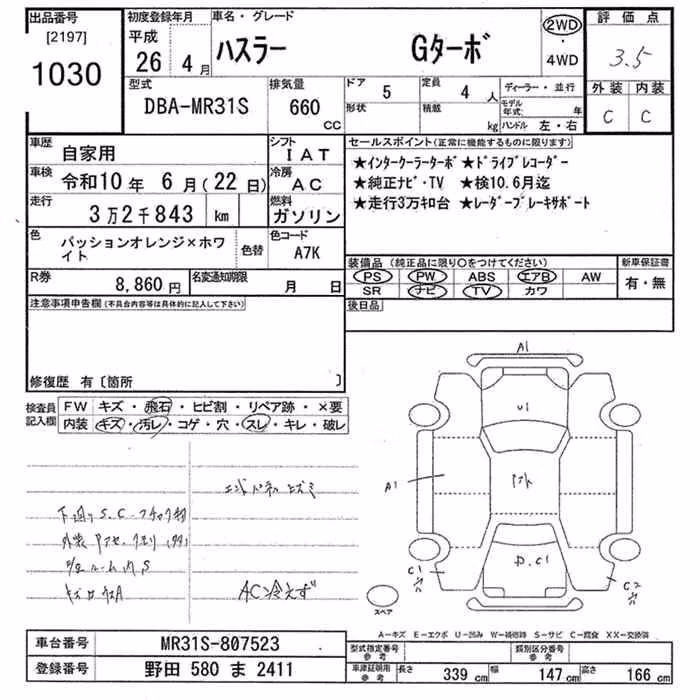 出品番号
[2197]
1030
初度登録年月
平成
26年 4月
車名・グレード
ハスラー Gターボ
2WD
・
4WD
評価点
3.5
外装 内装
C C
型式
DBA-MR31S
排気量
660 CC
ドア 5
定員 4人
形状
積載 kg
ディーラー・並行
モデル年式 年
ハンドル 左・右
車歴 自家用
シフト IAT
車検 令和10年 6月(22日)
冷房 AC
走行 3万2千843 km
燃料 ガソリン
色 パッションオレンジ×ホワイト
色替
色コード A7K
R券 8,860円
名変通知期限 月 日
セールスポイント(正常に機能するものに限ります)
★インタークーラーターボ★ドライブレコーダー
★純正ナビ・TV ★検10.6月迄
★走行3万キロ台 ★レーダーブレーキサポート
装備品(純正品に限り○をつけてください)
PS PW ABS エアB AW
SR ナビ TV カワ
新車保証書
有・無
後日品
注意事項申告欄(不具合内容等は具体的に記入して下さい)
修復歴 有〔箇所 〕
検査員記入欄
FW キズ・飛石・ヒビ割・リペア跡・×要
内装 キズ・汚レ・コゲ・穴・スレ・キレ・破レ
下廻りS.C.
AC冷えず
A1
U1
A1
D.C1
C1
C2
スペア
A-キズ E-エクボ U-凹み W-補修跡 S-サビ C-腐食 XX-交換済
車台番号 MR31S-807523
登録番号 野田 580 ま 2411
型式指定番号 参考
類別区分番号 参考
車庫証明用参考 長さ 339cm 幅 147cm 高さ 166cm